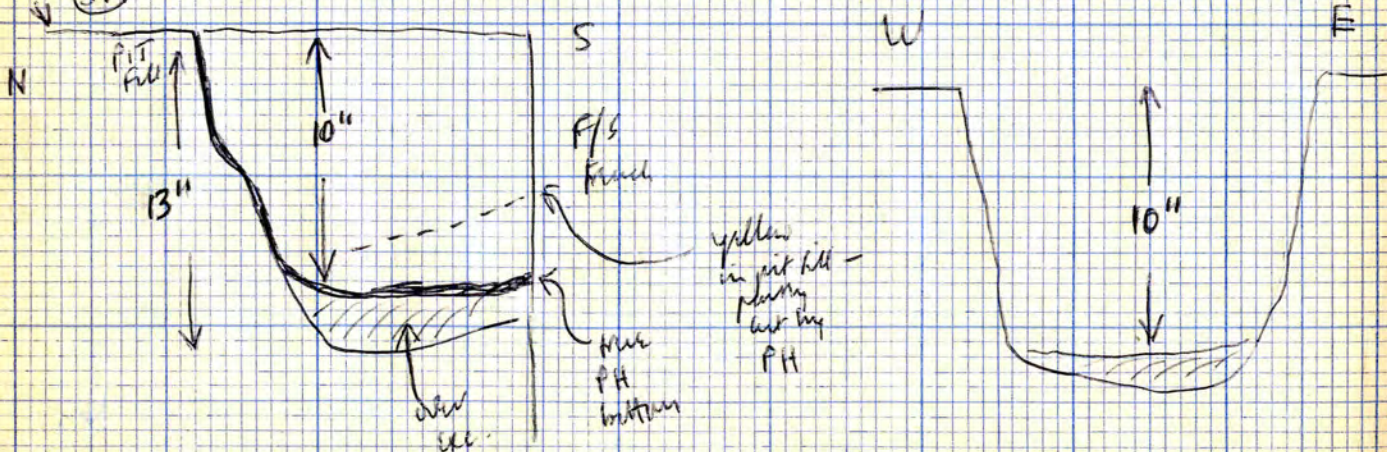 N
PIT
Fill
13"
10"
S
F/S
Trench
yellow
in pit fill –
cut by
PH
true
PH
bottom
over
exc.
W
E
10"